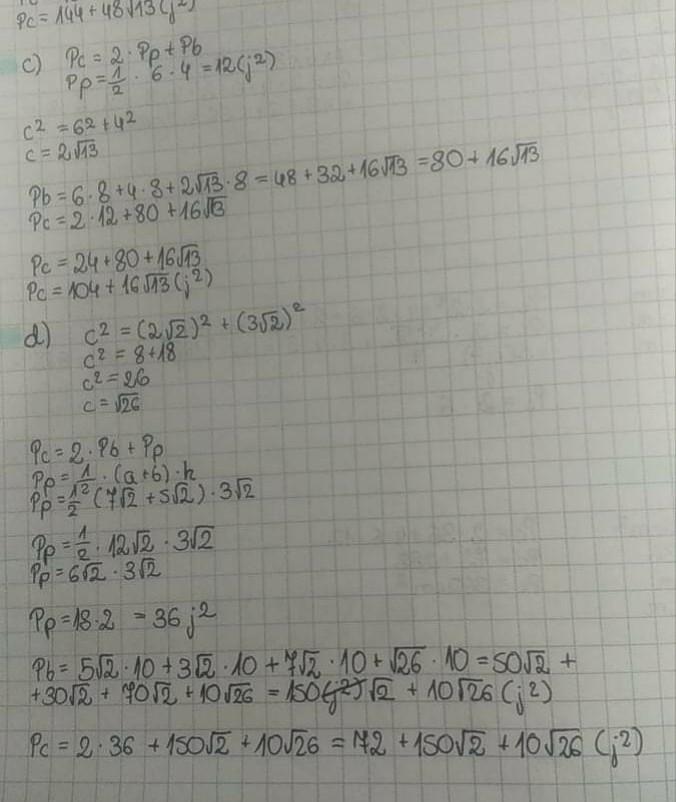 Pc = 144 + 48√13 (j²)
c) Pc = 2 · Pp + Pb
Pp = 1/2 · 6 · 4 = 12 (j²)
c² = 6² + 4²
c = 2√13
Pb = 6 · 8 + 4 · 8 + 2√13 · 8 = 48 + 32 + 16√13 = 80 + 16√13
Pc = 2 · 12 + 80 + 16√13
Pc = 24 + 80 + 16√13
Pc = 104 + 16√13 (j²)
d) c² = (2√2)² + (3√2)²
c² = 8 + 18
c² = 26
c = √26
Pc = 2 · Pb + Pp
Pp = 1/2 · (a + b) · h
Pp = 1/2 (7√2 + 5√2) · 3√2
Pp = 1/2 · 12√2 · 3√2
Pp = 6√2 · 3√2
Pp = 18 · 2 = 36 j²
Pb = 5√2 · 10 + 3√2 · 10 + 7√2 · 10 + √26 · 10 = 50√2 +
+ 30√2 + 70√2 + 10√26 = 150 (j²) √2 + 10√26 (j²)
Pc = 2 · 36 + 150√2 + 10√26 = 72 + 150√2 + 10√26 (j²)